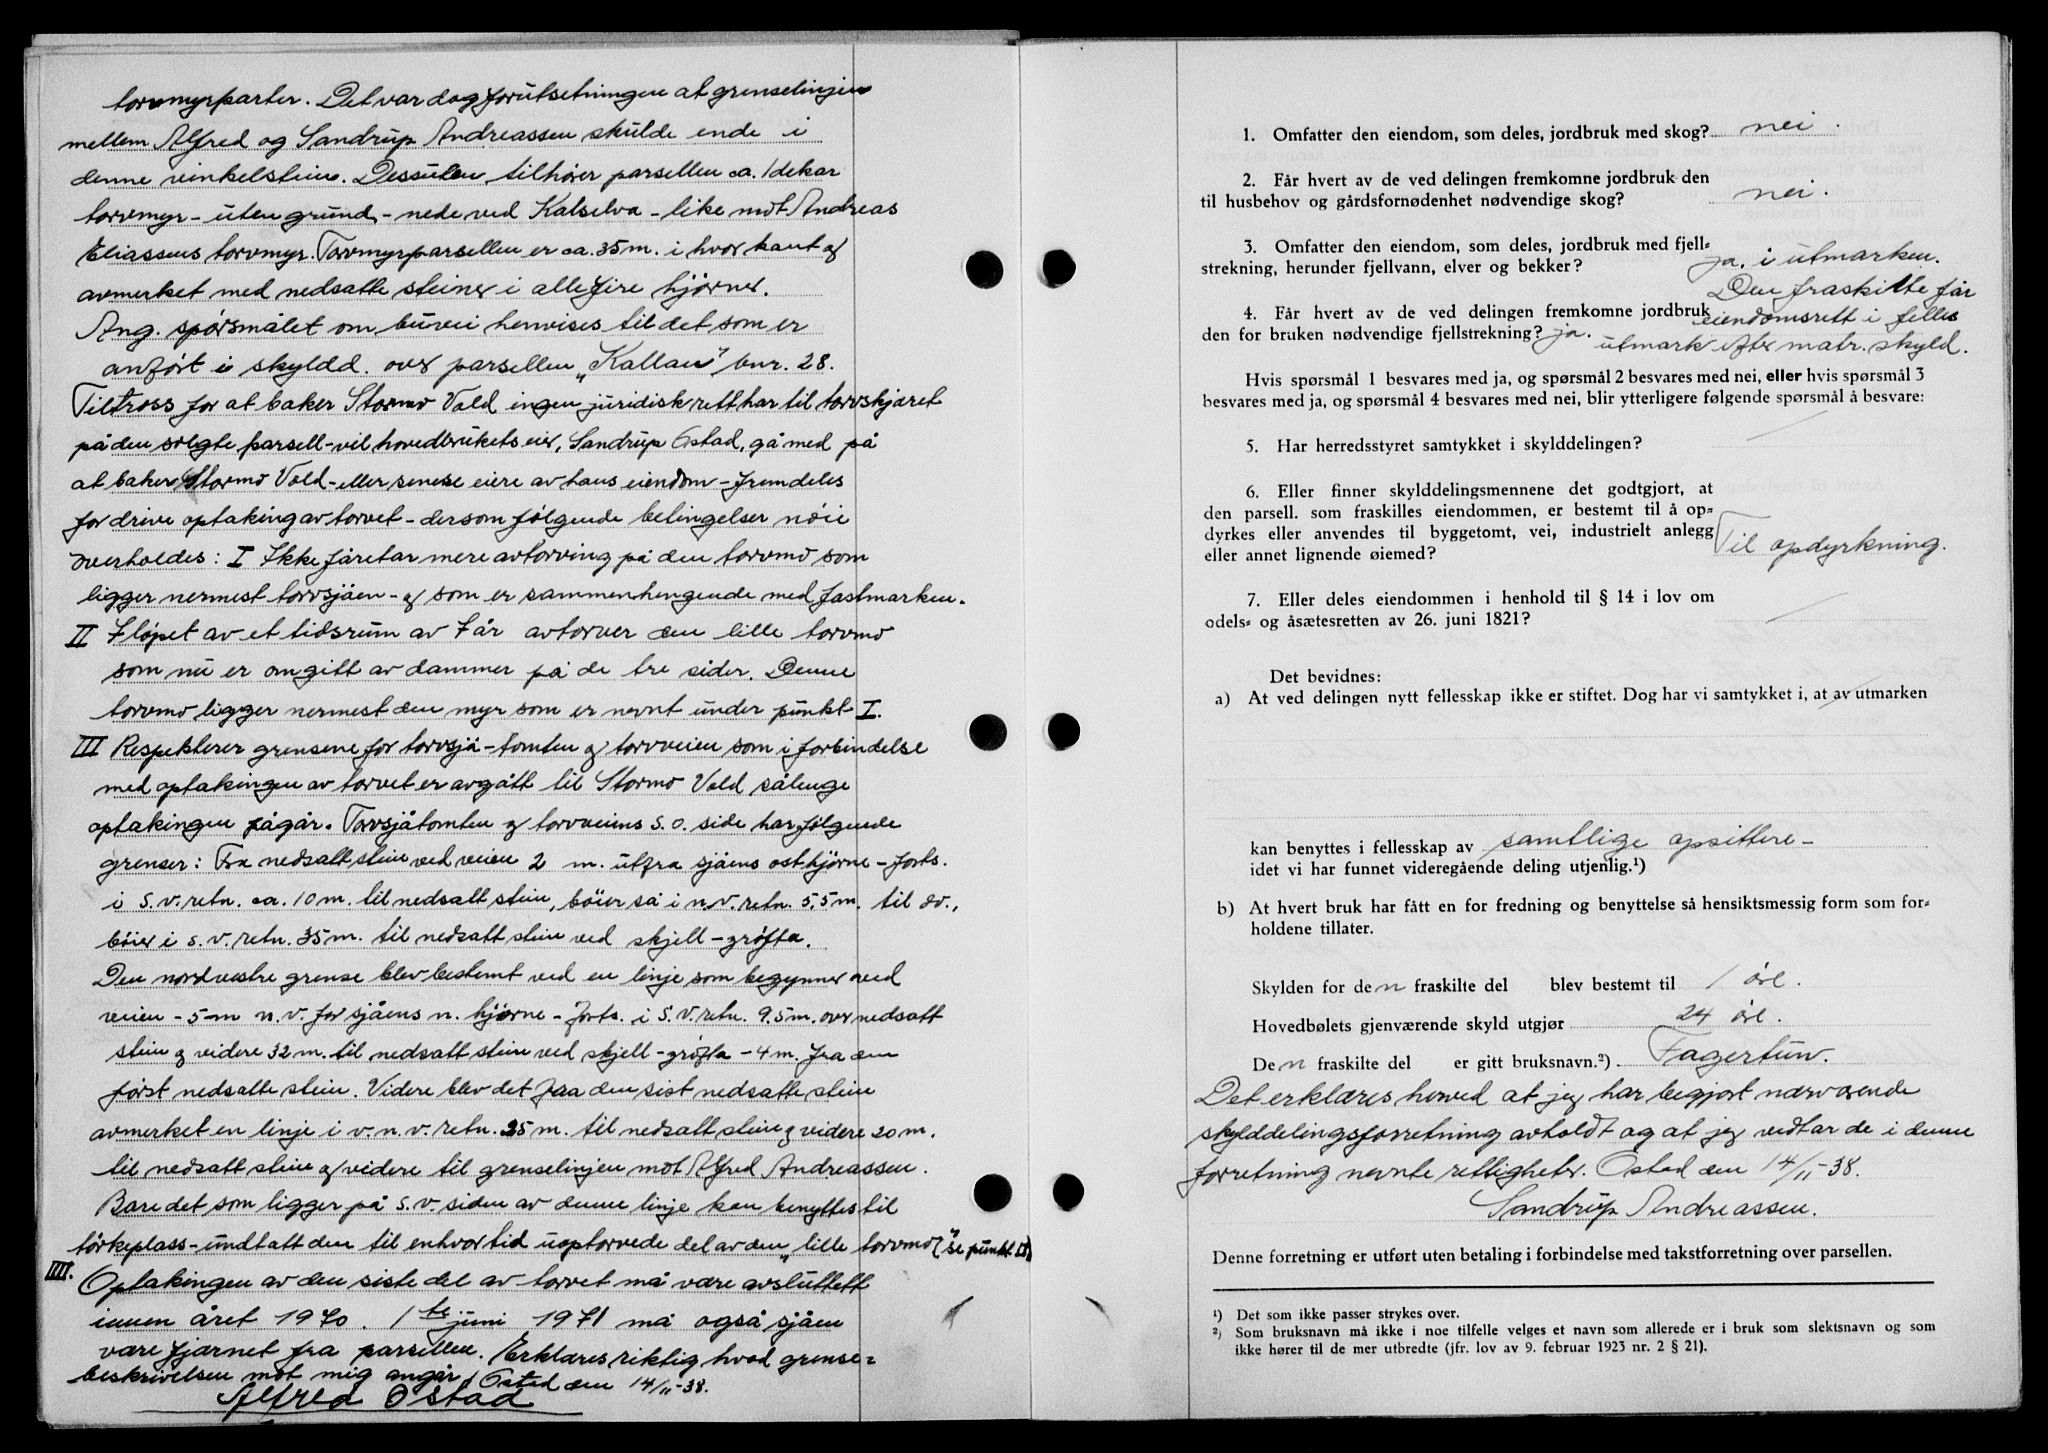 torvmyrparter. Det var dog forutsetningen at grenselinjen
mellem Alfred og Sandrup Andreassen skulde ende i
denne vinkelstein. Dessuten tilhører parsellen ca. 1 dekar
torvmyr - uten grund - nede ved Kalselva - like mot Andreas
Eliassens torvmyr. Torvmyrparsellen er ca. 35 m. i hver kant og
avmerket med nedsatte steiner i alle fire hjørner.
Ang. spørsmålet om bufei henvises til det som er
anført i skyldd. over parsellen „Kallan" bnr. 28.
Tiltross for at baker Stormo Vold ingen juridisk rett har til torvskjæret
på den solgte parsell - vil hovedbrukets eier, Sandrup Østad, gå med på
at baker Stormo Vold - eller senere eiere av hans eiendom - fremdeles
for drive optaking av torvet - dersom følgende betingelser nøie
overholdes: I Ikke foretar mere avtorving på den torvmo som
ligger nermest torvsjåen - og som er sammenhengende med fastmarken.
II I løpet av et tidsrum av 7 år avtorver den lille torvmo
som nu er omgitt av dammer på de tre sider. Denne
torvmo ligger nermest den myr som er nevnt under punkt I.
III Respekterer grensene for torvsjå - tomten og torvveien som i forbindelse
med optakingen av torvet er avgått til Stormo Vold sålenge
optakingen pågår. Torvsjåtomten og torvveiens s.o. side har følgende
grenser: Fra nedsatt stein ved veien 2 m. ut fra sjåens østhjørne - forts.
i s.v. retn. ca. 10 m. til nedsatt stein, bøier så i n.v. retn. 5,5 m. til do.,
bøier i s.v. retn. 35 m. til nedsatt stein ved skjell - grøfta.
Den nordvestre grense blev bestemt ved en linje som begynner ved
veien - 5 m n.v. for sjåens n. hjørne - forts. i s.v. retn. 9.5 m. over nedsatt
stein og videre 32 m. til nedsatt stein ved skjell - grøfta - 4 m. fra den
først nedsatte stein. Videre blev det fra den sist nedsatte stein
avmerket en linje i v.n.v. retn. 25 m. til nedsatt stein og videre 20 m.
til nedsatt stein og videre til grenselinjen mot Alfred Andreassen.
Bare det som ligger på s.v. siden av denne linje kan benyttes til
tørkeplass - undtatt den til enhver tid uoptorvede del av den „lille torvmo" (se punkt II)
IIII. Optakingen av den siste del av torvet må være avsluttett
innen året 1970. 1ste juni 1971 må også sjåen
være fjernet fra parsellen. Erklæres riktig hvad grense=
beskrivelsen mot mig angår, Østad den 14/11-38.
Alfred Østad
1. Omfatter den eiendom, som deles, jordbruk med skog? nei.
2. Får hvert av de ved delingen fremkomne jordbruk den
til husbehov og gårdsfornødenhet nødvendige skog? nei.
3. Omfatter den eiendom, som deles, jordbruk med fjell=
strekning, herunder fjellvann, elver og bekker? ja, i utmarken.
Den fraskilte får
4. Får hvert av de ved delingen fremkomne jordbruk eiendomsrett i felles
den for bruken nødvendige fjellstrekning? ja. utmark efter matr. skyld.
Hvis spørsmål 1 besvares med ja, og spørsmål 2 besvares med nei, eller hvis spørsmål 3
besvares med ja, og spørsmål 4 besvares med nei, blir ytterligere følgende spørsmål å besvare:
5. Har herredsstyret samtykket i skylddelingen?
6. Eller finner skylddelingsmennene det godtgjort, at
den parsell. som fraskilles eiendommen, er bestemt til å op=
dyrkes eller anvendes til byggetomt, vei, industrielt anlegg
eller annet lignende øiemed? Til opdyrkning.
7. Eller deles eiendommen i henhold til § 14 i lov om
odels= og åsætesretten av 26. juni 1821?
Det bevidnes:
a) At ved delingen nytt fellesskap ikke er stiftet. Dog har vi samtykket i, at av utmarken
kan benyttes i fellesskap av samtlige opsittere -
idet vi har funnet videregående deling utjenlig.¹)
b) At hvert bruk har fått en for fredning og benyttelse så hensiktsmessig form som for=
holdene tillater.
Skylden for den fraskilte del blev bestemt til 1 øre.
Hovedbølets gjenværende skyld utgjør 24 øre.
Den fraskilte del er gitt bruksnavn.²) Fagertun.
Det erklæres herved at jeg har begjært nærværende
skylddelingsforretning avholdt og at jeg vedtar de i denne
forretning nevnte rettigheter. Østad den 14/11-38.
Sandrup Andreassen.
Denne forretning er utført uten betaling i forbindelse med takstforretning over parsellen.
¹) Det som ikke passer strykes over.
²) Som bruksnavn må ikke i noe tilfelle velges et navn som allerede er i bruk som slektsnavn og som
ikke hører til de mer utbredte (jfr. lov av 9. februar 1923 nr. 2 § 21).